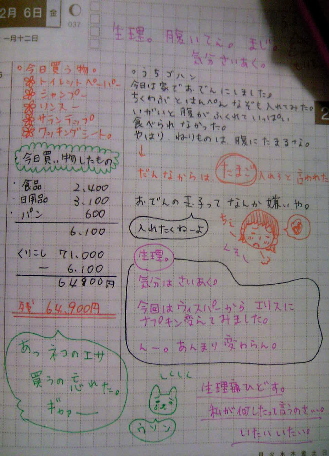 2月 6日 金
一月十二日
037
生理。腹いてぇ。まじ
気分さいあく。
○今日買う物。
トイレットペーパー
シャンプー
リンス
サランラップ
クッキングシート。
今日買い物したもの
・食品 2,400
・日用品 3,100
・パン 600
6,100
くりこし 71,000
ー 6,100
64900円
残 64,900円
あっ ネコのエサ
買うの忘れた。
ギャァー
○うちゴハン
今日は家でおでんにしました。
ちくわぶとはんぺんなぞを入れてみた。
いがいと腹がふくれていっぱい
食べられなかった。
やはり、ねりものは腹にたまるな。
↓
だんなからは たまご 入れろと言われた
おでんの玉子ってなんか嫌いや。
入れたくねーよ
生理。
気分はさいあく。
今回はウィスパーからエリスに
ナプキン変えてみました。
んー。あんまり変わらん。
しくしく
ウソン
生理痛ひどす。
私が何したって言うのさー。
いたいいたい。